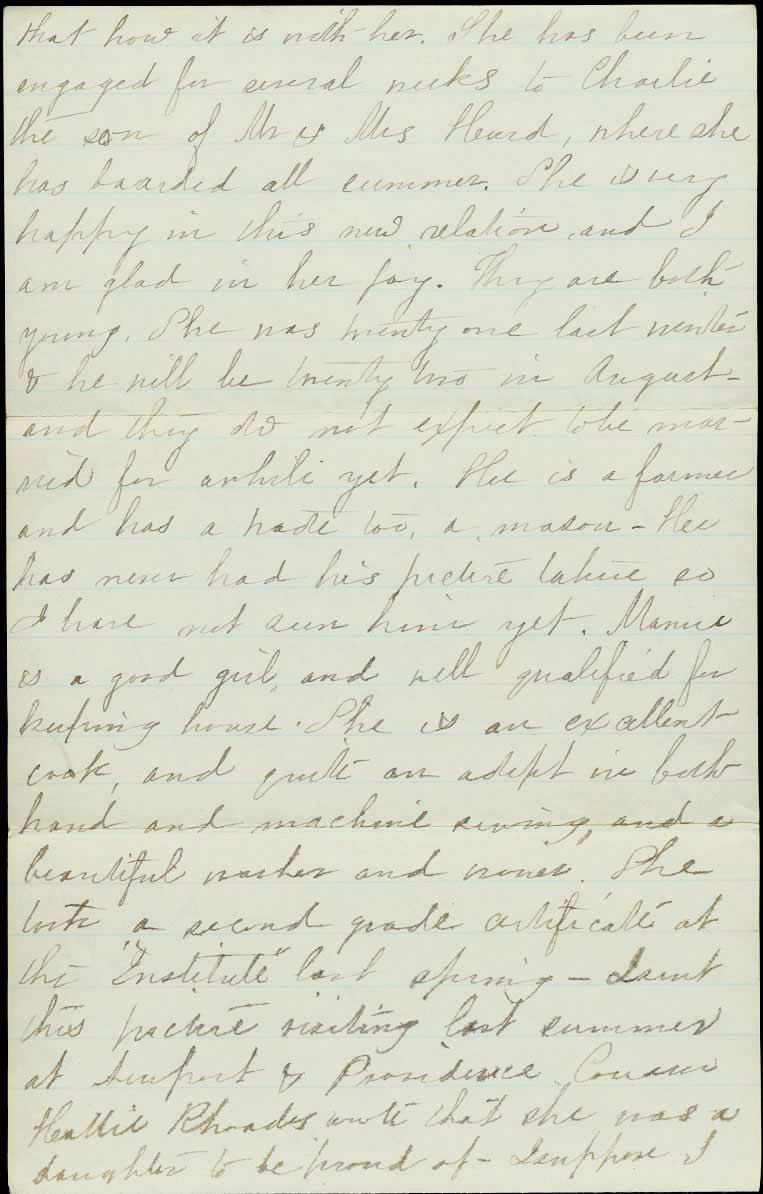 that how it is with her. She has been
engaged for several weeks to Charlie
the son of Mr & Mrs Heard, where she
has boarded all summer. She is very
happy in this new relation, and I
am glad in her joy. They are both
young. She was twenty one last winter
& he will be twenty two in August-
and they do not expect to be mar-
ried for awhile yet. He is a farmer
and has a trade too, a mason - He
has never had his picture taken so
I have not seen him yet. Mamie
is a good girl, and well qualified for
keeping house. She is an excellent
cook, and quite an adept in both
hand and machine sewing, and a
beautiful washer and ironer. She
took a second grade certificate at
the "Institute" last spring - I sent
this picture visiting last summer
at Newport & Providence. Cousin
Hattie Rhoades wrote that she was a
daughter to be proud of - I suppose I